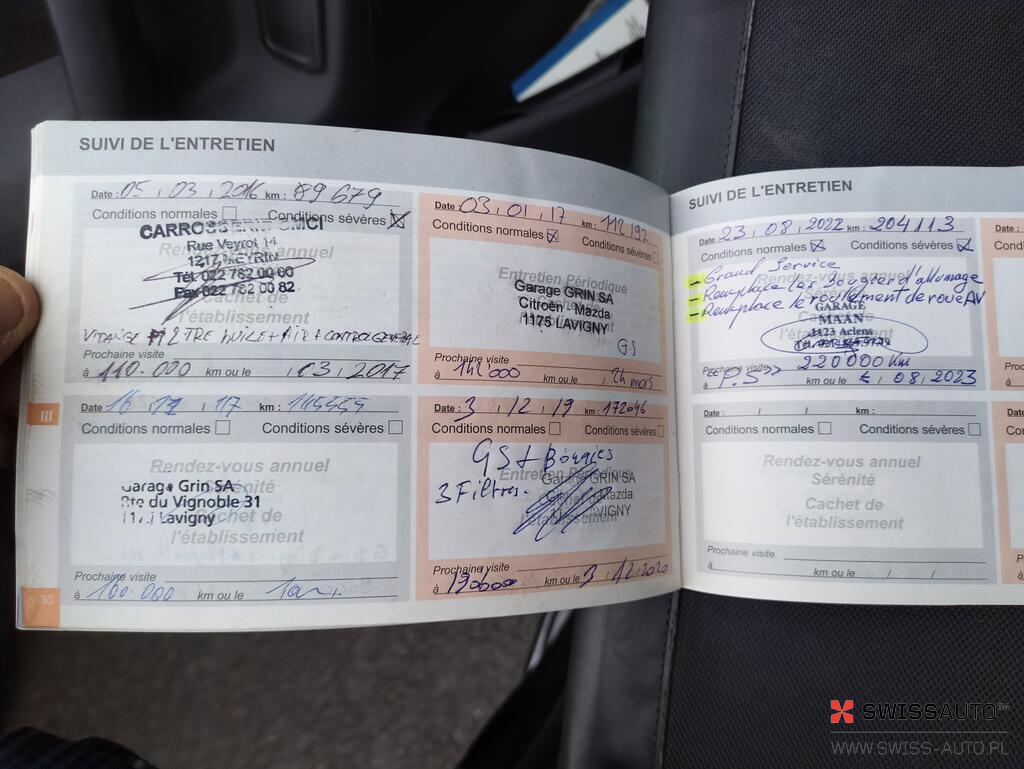 SUIVI DE L'ENTRETIEN
Date : 05 , 03 , 2016 km : 89679
Conditions normales Conditions sévères
CARROSSERIE OMCI
Rue Veyrot 14
1217 MEYRIN
Tél. 022 782 00 00
Fax 022 782 00 82
Cachet de
l'établissement
VIDANGE + FILTRE HUILE + AIR + CONTROL GENERAL
Prochaine visite
à 110.000 km ou le , 03 , 2017
Date : 03 , 01 , 17 km : 112192
Conditions normales Conditions sévères
Entretien Périodique
Garage GRIN SA
Citroën - Mazda
1175 LAVIGNY
GS
Prochaine visite
à 142'000 km ou le , 24 mois
III
Date : 16 , 11 , 17 km : 145555
Conditions normales Conditions sévères
Rendez-vous annuel
Sérénité
Garage Grin SA
Rte du Vignoble 31
Lavigny
Cachet de
l'établissement
Prochaine visite
à 160.000 km ou le 1an
30
Date : 3 , 12 , 19 km : 172046
Conditions normales Conditions sévères
GS + Bougies
Entretien Périodique
Garage GRIN SA
3 Filtres.
Mazda
LAVIGNY
l'établissement
Prochaine visite
à 190000 km ou le 3 , 12 , 2020
SUIVI DE L'ENTRETIEN
Date : 23 , 08 , 2022 km : 204113
Conditions normales Conditions sévères
- Grand Service
Rendez-vous annuel
- Remplace les Bougies d'allumage
- Remplace le roullement de roue AV
GARAGE
MAAN
1123 Aclens
l'établissement
Prochaine visite 220000 Km
à P.S>> km ou le , 08 , 2023
Date : / / km :
Conditions normales Conditions sévères
Rendez-vous annuel
Sérénité
Cachet de
l'établissement
Prochaine visite
à km ou le / /
SWISSAUTO
WWW.SWISS-AUTO.PL